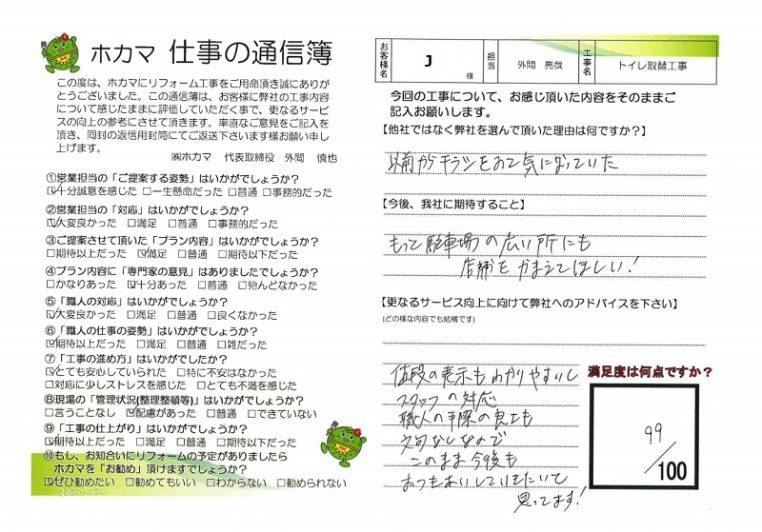 ホカマ 仕事の通信簿
この度は、ホカマにリフォーム工事をご用命頂き誠にありが
とうございました。この通信簿は、お客様に弊社の工事内容
について感じたままに評価していただく事で、更なるサービ
スの向上の参考にさせて頂きます。率直なご意見をご記入を
頂き、同封の返信用封筒にてご返送下さいます様お願い申し
上げます。
㈱ホカマ 代表取締役 外間 慎也
①営業担当の「ご提案する姿勢」はいかがでしょうか?
☑十分誠意を感じた □一生懸命だった □普通 □事務的だった
②営業担当の「対応」はいかがでしょうか?
☑大変良かった □満足 □普通 □事務的だった
③ご提案させて頂いた「プラン内容」はいかがでしょうか?
□期待以上だった ☑満足 □普通 □期待以下だった
④プラン内容に「専門家の意見」はありましたでしょうか?
□かなりあった ☑十分あった □普通 □殆んどなかった
⑤「職人の対応」はいかがでしょうか?
☑大変良かった □満足 □普通 □良くなかった
⑥「職人の仕事の姿勢」はいかがでしょうか?
☑期待以上だった □満足 □普通 □雑だった
⑦「工事の進め方」はいかがでしたか?
☑とても安心していられた □特に不安はなかった
□対応に少しストレスを感じた □とても不満を感じた
⑧現場の「管理状況(整理整頓等)」はいかがでしょうか?
□言うことなし ☑配慮があった □普通 □できていない
⑨「工事の仕上がり」はいかがでしょうか?
☑期待以上だった □満足 □普通 □期待以下だった
⑩もし、お知合いにリフォームの予定がありましたら
ホカマを「お勧め」頂けますでしょうか?
☑ぜひ勧めたい □勧めてもいい □わからない □勧められない
お客様名 J 様 担当 外間 亮哉 工事名 トイレ取替工事
今回の工事について、お感じ頂いた内容をそのままご
記入お願いします。
【他社ではなく弊社を選んで頂いた理由は何ですか?】
以前からチラシをみて気になっていた
【今後、我社に期待すること】
もっと駐車場の広い所にも
店舗をかまえてほしい!
【更なるサービス向上に向けて弊社へのアドバイスを下さい】
(どの様な内容でも結構です)
値段の表示もわかりやすいし
スタッフの対応
職人の手際の良さも
文句なしなので
このまま今後も
おつきあいしていきたいて
思ってます!
満足度は何点ですか?
99
/100